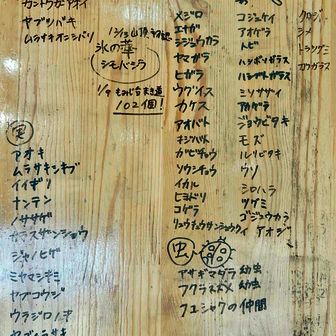 カントウカンアオイ
ヤブツバキ
ムラサキオンツツジ
氷の華
シモバシラ
もみじ台 まき道
102個!
実
アオキ
ムラサキシキブ
イイギリ
ナンテン
ノササゲ
カラスザンショウ
ジャノヒゲ
ミヤマシキミ
ヤブコウジ
ウラジロノキ
メジロ
エナガ
シジュウカラ
ヤマガラ
ヒガラ
ウグイス
カケス
アオバト
キジバト
ガビチョウ
ソウシチョウ
イカル
ヒヨドリ
コゲラ
リュウキュウサンショウクイ
コジュケイ
アオゲラ
トビ
ハシボソガラス
ハシブトガラス
ミソサザイ
アカゲラ
ジョウビタキ
モズ
ルリビタキ
ウソ
シロハラ
ツグミ
ゴジュウカラ
アオジ
クロジ
シメ
カワガラス
虫
アサギマダラ 幼虫
フクラスズメ 幼虫
フユシャクの仲間